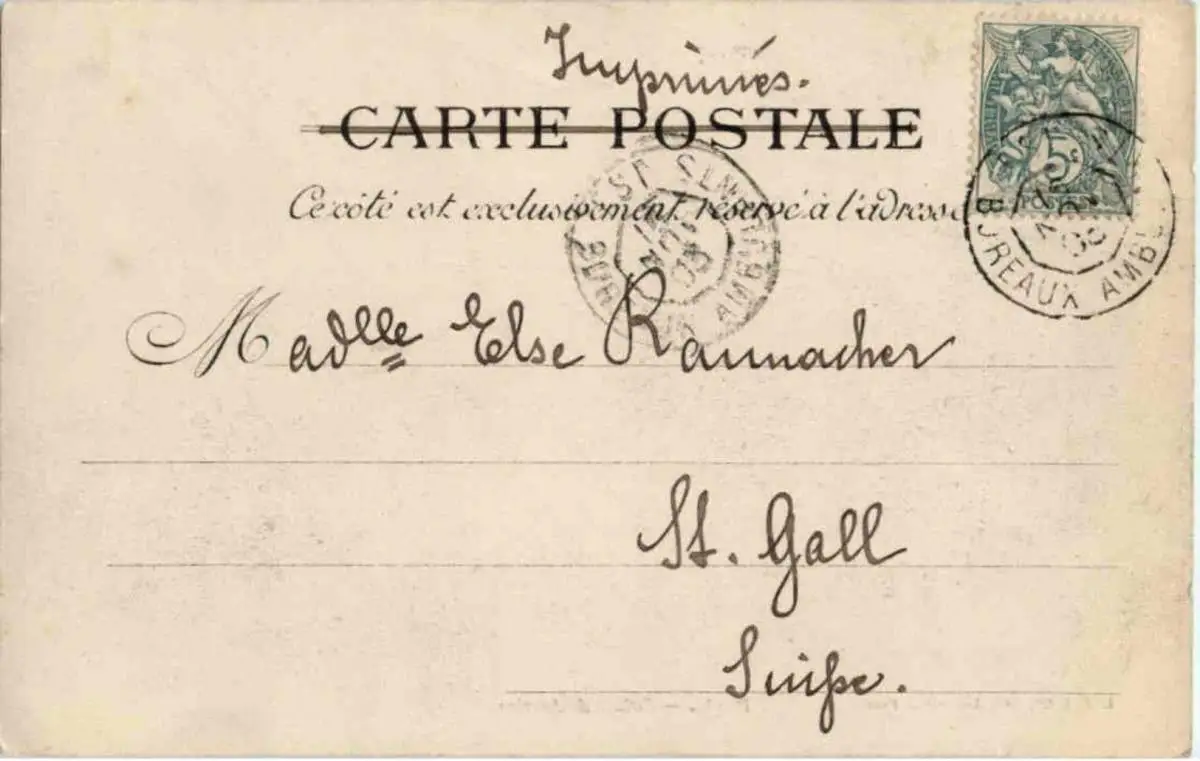 Imprimés.
CARTE POSTALE
Ce côté est exclusivement réservé à l'adresse
5c
POSTES
BUREAUX AMBU
03
Madlle Else Raunacher
St. Gall
Suiſse.